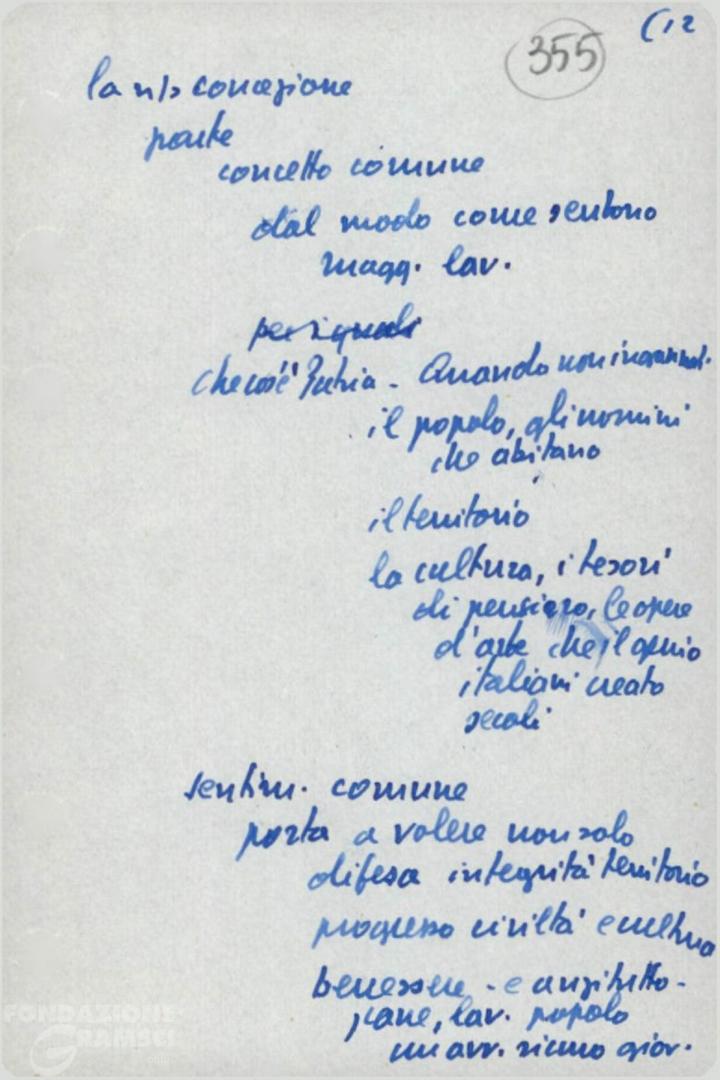 (12
355
la n/s concezione
parte
concetto comune
dal modo come sentono
magg. lav.
per i quali
Che cos'è Patria - Quando non
il popolo, gli uomini
che abitano
il territorio
la cultura, i tesori
di pensiero, le opere
d'arte che il genio
italiani creato
secoli
sentim. comune
porta a volere non solo
difesa integrità territorio
progresso civiltà e cultura
benessere - e anzitutto -
pane, lav. popolo
un avv. sicuro giov.
FONDAZIONE
GRAMSCI